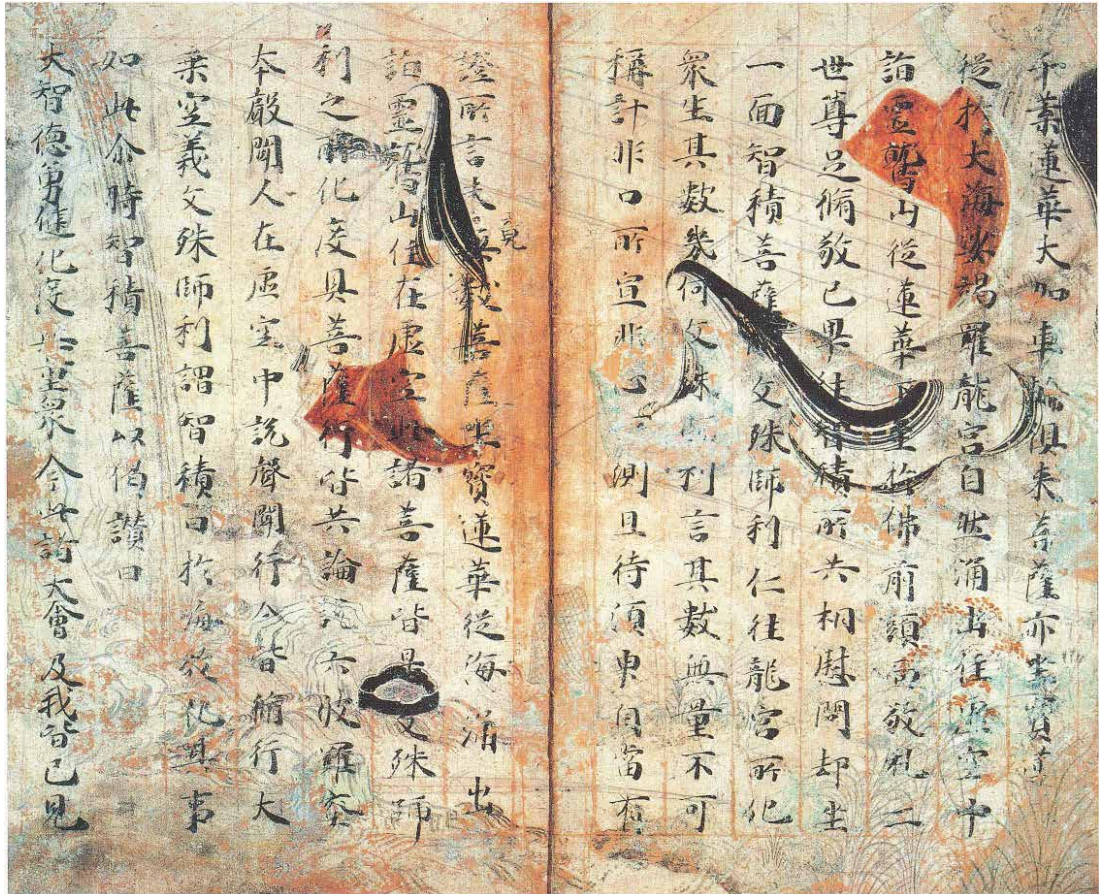 千葉蓮華大如車輪俱来菩薩亦坐寶蓮
從於大海娑竭羅龍宮自然涌出住虛空中
詣靈鷲山從蓮華下至於佛前頭面敬礼二
世尊足脩敬已畢往智積所共相慰問却坐
一面智積菩薩問文殊師利仁往龍宮所化
衆生其數幾何文殊師利言其數無量不可
稱計非口所宣非心測且待須臾自當有
證所言未竟無數菩薩坐寶蓮華從海涌出
詣靈鷲山住在虛空此諸菩薩皆是文殊師
利之所化度具菩薩行皆共論說六波羅蜜
本聲聞人在虛空中說聲聞行今皆脩行大
乗空義文殊師利謂智積曰於海教化其事
如此尒時智積菩薩以偈讃曰
大智德勇健化度無量衆今此諸大會及我皆已見